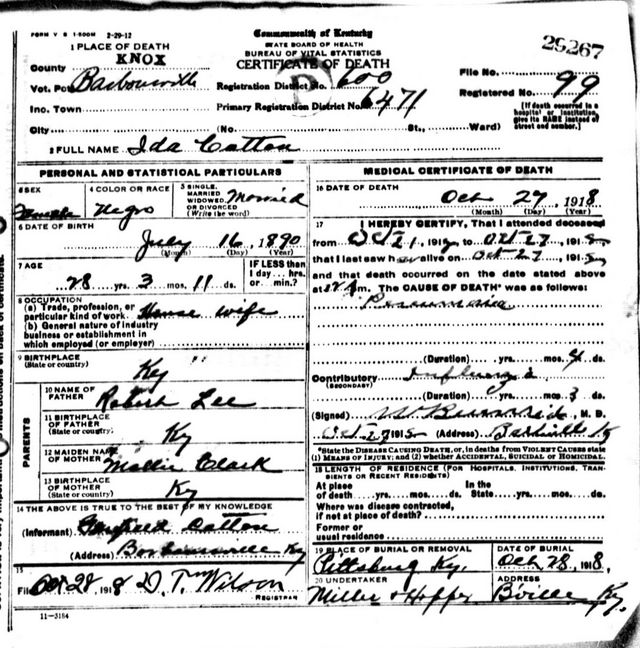 FORM V S 1-500M 2-29-12
Commonwealth of Kentucky
STATE BOARD OF HEALTH
BUREAU OF VITAL STATISTICS
CERTIFICATE OF DEATH
29267
1 PLACE OF DEATH
County KNOX
Vot. Pct Barbourville
Inc. Town
City (No. St., Ward)
Registration District No. 600
Primary Registration District No. 6471
File No.
Registered No. 99
[If death occurred in a
hospital or institution,
give its NAME instead of
street and number.]
2 FULL NAME Ida Catton
PERSONAL AND STATISTICAL PARTICULARS
3 SEX
Female
4 COLOR OR RACE
Negro
5 SINGLE,
MARRIED
WIDOWED
OR DIVORCED
(Write the word)
Married
6 DATE OF BIRTH
July 16, 1890
(Month) (Day) (Year)
7 AGE
28 yrs. 3 mos. 11 ds.
IF LESS than
1 day... hrs.
or.... min.?
8 OCCUPATION
(a) Trade, profession, or
particular kind of work House wife
(b) General nature of industry
business or establishment in
which employed (or employer)
9 BIRTHPLACE
(State or country)
Ky
PARENTS
10 NAME OF
FATHER
Robert Lee
11 BIRTHPLACE
OF FATHER
(State or country)
Ky
12 MAIDEN NAME
OF MOTHER
Mollie Clark
13 BIRTHPLACE
OF MOTHER
(State or country)
Ky
14 THE ABOVE IS TRUE TO THE BEST OF MY KNOWLEDGE
(Informant) Catton
(Address) Barbourville Ky
15
Filed Oct 28 1918 D. T. Wilson
REGISTRAR
11-3184
MEDICAL CERTIFICATE OF DEATH
16 DATE OF DEATH
Oct 27, 1918
(Month) (Day) (Year)
17 I HEREBY CERTIFY, That I attended deceased
from Oct 21, 191 to Oct 27, 1918
that I last saw h alive on Oct 27, 1918
and that death occurred on the date stated above
at m. The CAUSE OF DEATH* was as follows:
Pneumonia
(Duration) yrs. mos. 4 ds.
Contributory Influenza
(SECONDARY)
(Duration) yrs. mos. 3 ds.
(Signed) M. D.
Oct 27 1918 (Address) Ky
*State the DISEASE CAUSING DEATH, or, in deaths from VIOLENT CAUSES state
(1) MEANS OF INJURY; and (2) whether ACCIDENTAL, SUICIDAL or HOMICIDAL.
18 LENGTH OF RESIDENCE (FOR HOSPITALS, INSTITUTIONS, TRAN-
SIENTS OR RECENT RESIDENTS)
At place
of death yrs. mos. ds.
In the
State yrs. mos. ds.
Where was disease contracted,
if not at place of death?
Former or
usual residence
19 PLACE OF BURIAL OR REMOVAL
Pittsburg Ky.
DATE OF BURIAL
Oct 28, 1918.
20 UNDERTAKER
Miller & Hopper
ADDRESS
B'ville Ky.